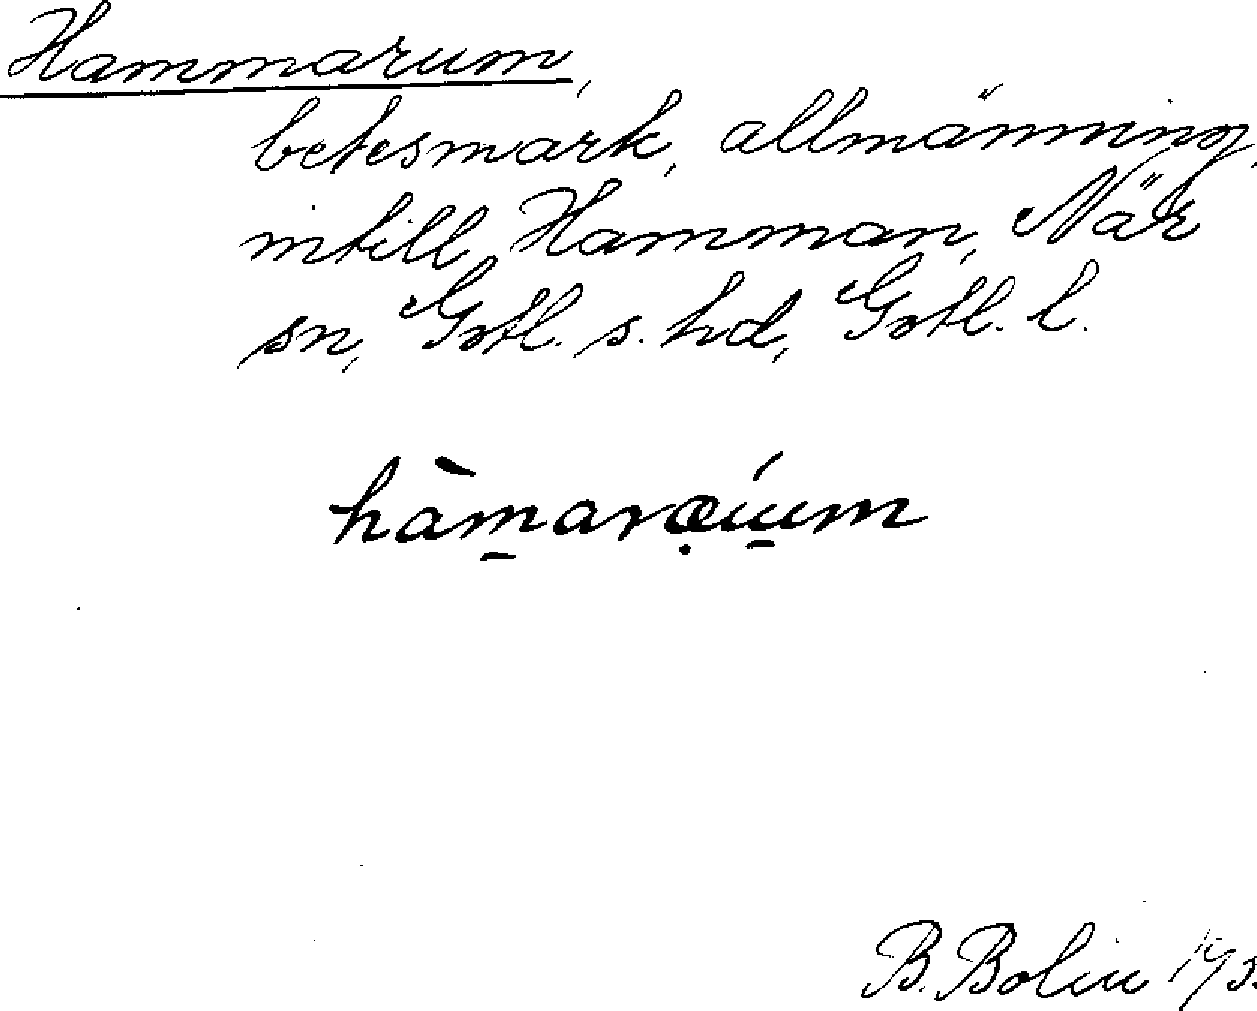 Hammarum,
betesmark, allmänning,
intill Hamman, När
sn, Gotl. s. hd, Gotl. l.
B. Bolin